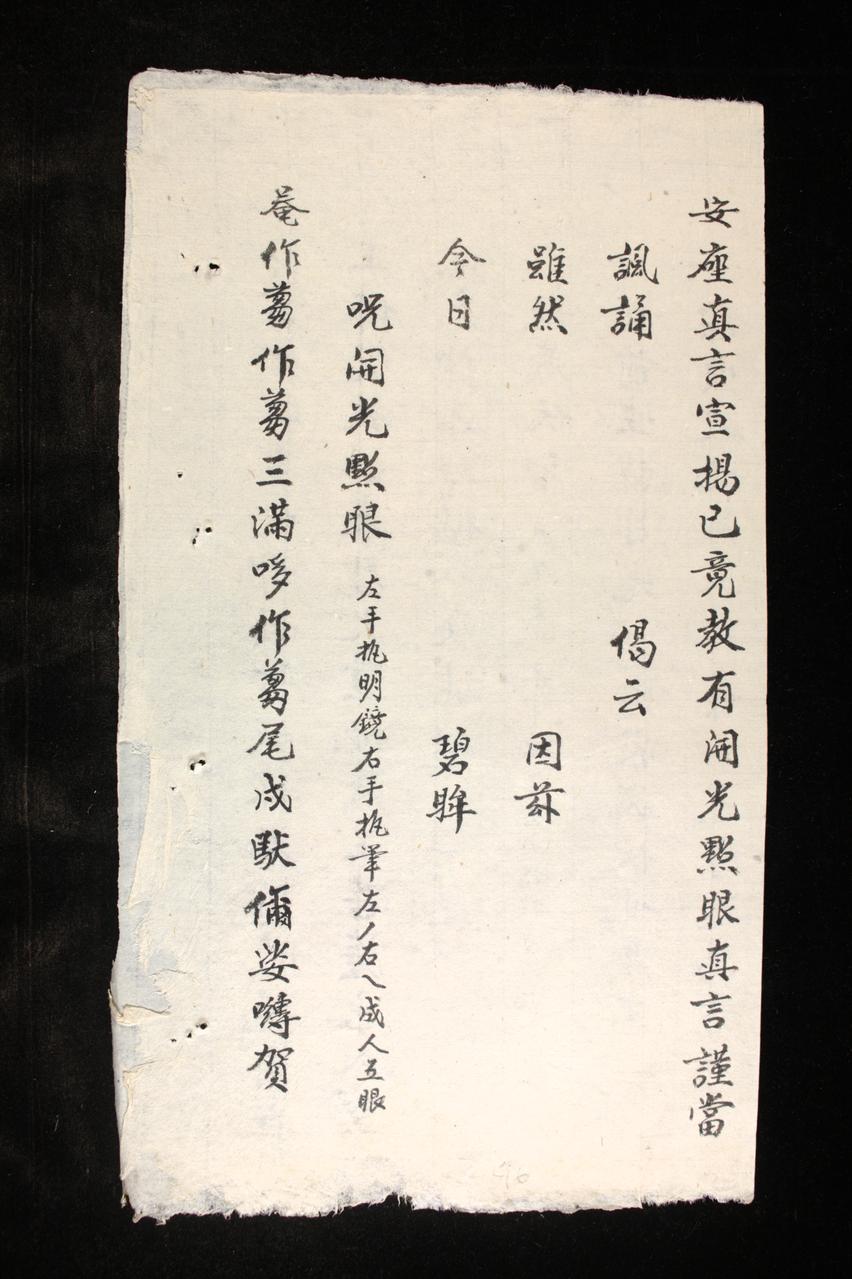 安座真言宣揚已竟教有開光點眼真言謹當
諷誦 偈云
雖然 因茲
今日 碧眸
呪開光點眼 左手执明鏡右手执筆左丿右乀成人五眼
唵作蒭作蒭三滿哆作蒭尾戍馱儞娑嚩賀